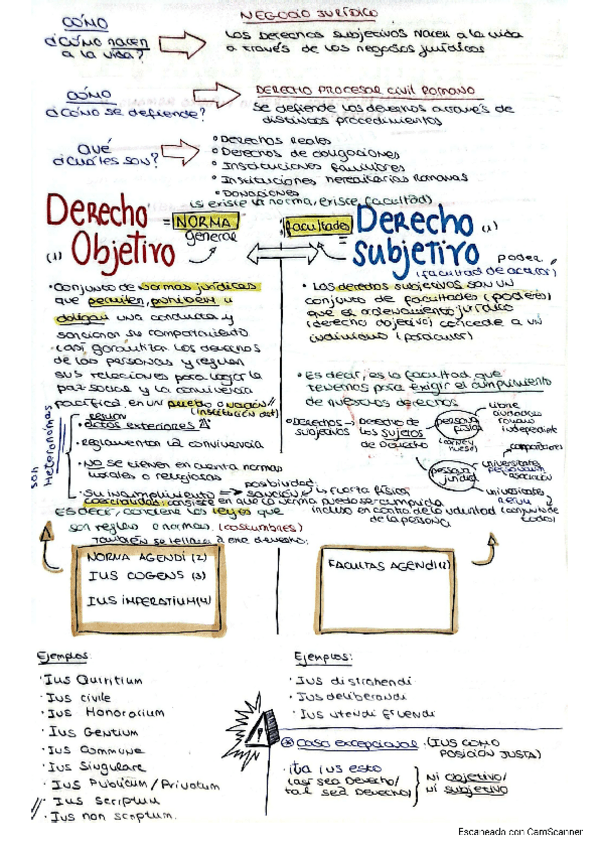 NEGOCIO JURÍDICO
CÓMO
¿Cómo nacen a la vida?
Los Derechos subjetivos nacen a la vida
a través de los negosos jurídicos
CÓMO
¿Cómo se defiende?
DERECHO PROCESAR CIVIL ROMANO
Se defiende los derechos através de
distintos procedimientos
QUÉ
¿Cuáles son?
• Derechos Reales
• Derechos de obligaciones
• Instituciones familiares
• Instituciones hereditarias Romanas
• Donaciones
(si existe la norma, existe facultad)
Derecho
Objetivo
(1)
= NORMA
general
facultades
=
Derecho
Subjetivo
(1)
poder
(facultad de actuar)
• Conjunto de normas jurídicas
que permiten, prohiben u
obligan una conducta y
sancionar su comportamiento
(así garantizar los derechos
de las personas y regulen
sus relaciones para lograr la
paz social y la convivencia
pacífica en un pueblo o nación//
• Los derechos subjetivos son un
conjunto de facultades (poderes)
que el ordenamiento jurídico
(derecho objetivo) concede a un
individuo (particular)
• Es decir, es la facultad que
tenemos para exigir el cumplimiento
de nuestros derechos
son
Heteronomas
regulan
• actos exteriores
• reglamentan la convivencia
• No se tienen en cuenta normas
morales o religiosas
• Derechos subjetivos → Derecho de
los sujetos
de Derecho
persona física
(carne y hueso)
libre
ciudadano
romano
independiente
persona jurídica
corporaciones
universitates
personarum
asociación
universitates
rerum
posibilidad
• Su incumplimiento => sanción o la fuerza física,
coactividad: consiste en que la norma pueda ser cumplida
incluso en contra de la voluntad
de la persona
Es decir, contiene las leyes que
son reglas o normas. (costumbres)
También se llama a ese derecho:
NORMA AGENDI (2)
IUS COGENS (3)
IUS IMPERATIUM (4)
FACULTAS AGENDI (2)
Ejemplos:
• Ius Quiritium
• Ius civile
• Ius Honorarium
• Ius Gentium
• Ius Commune
• Ius Singulare
• Ius Publicum / Privatum
• Ius scriptum
• Ius non scriptum.
Ejemplos:
• Ius distrahendi
• Ius deliberandi
• Ius utendi fruendi
Caso excepcional. (IUS COMO
POSICIÓN JUSTA)
• Ita ius esto
(así sea Derecho/
tal sea Derecho)
Ni objetivo/
ni subjetivo
Escaneado con CamScanner